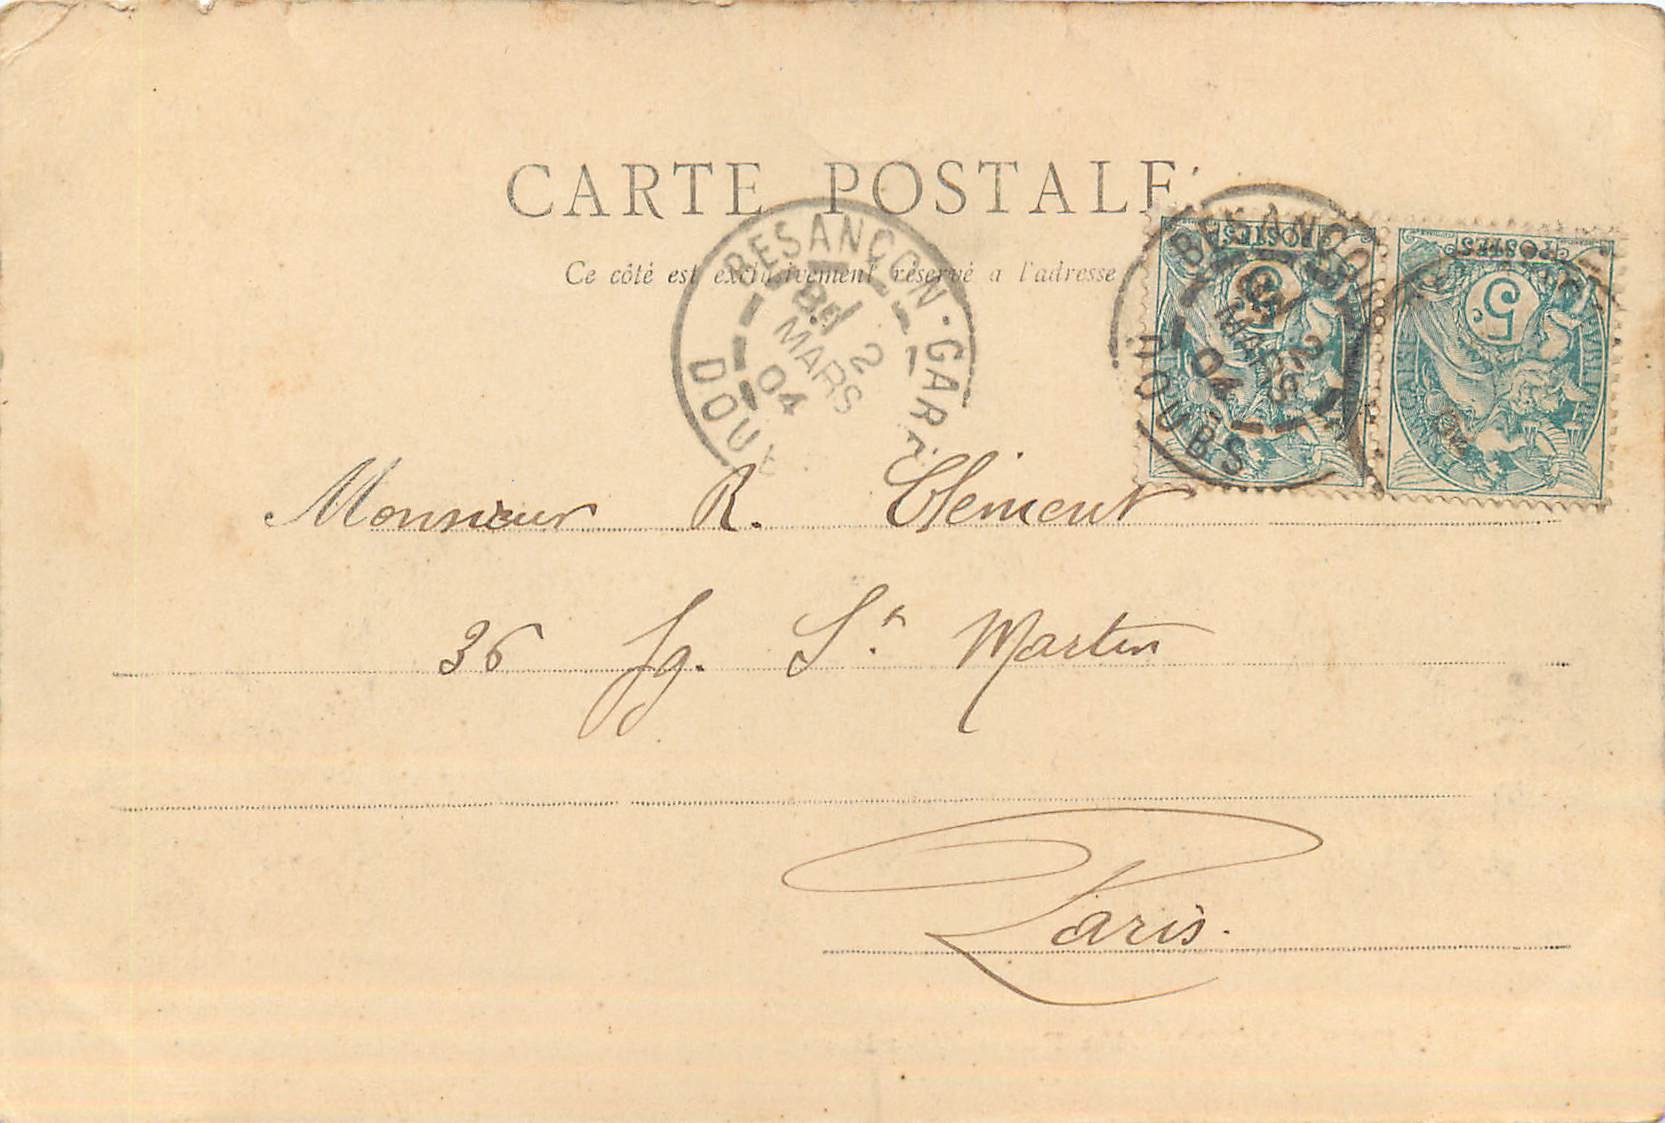 CARTE POSTALE
Ce côté est exclusivement réservé a l'adresse
BESANÇON-GARE
8E 2
MARS
04
DOUBS
BESANÇON
8E 2
MARS
04
DOUBS
POSTES
5
POSTES
5c
Monsieur R. Clément
36 fg. St. Martin
Paris.